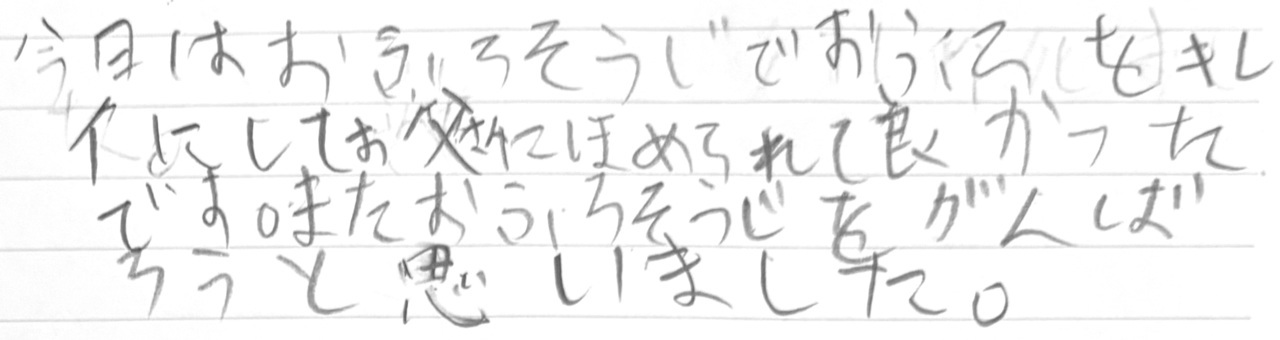 今日はおふろそうじでおふろをキレ
イにしてお父さんにほめられて良かった
です。またおふろそうじをがんば
ろうと思いました。